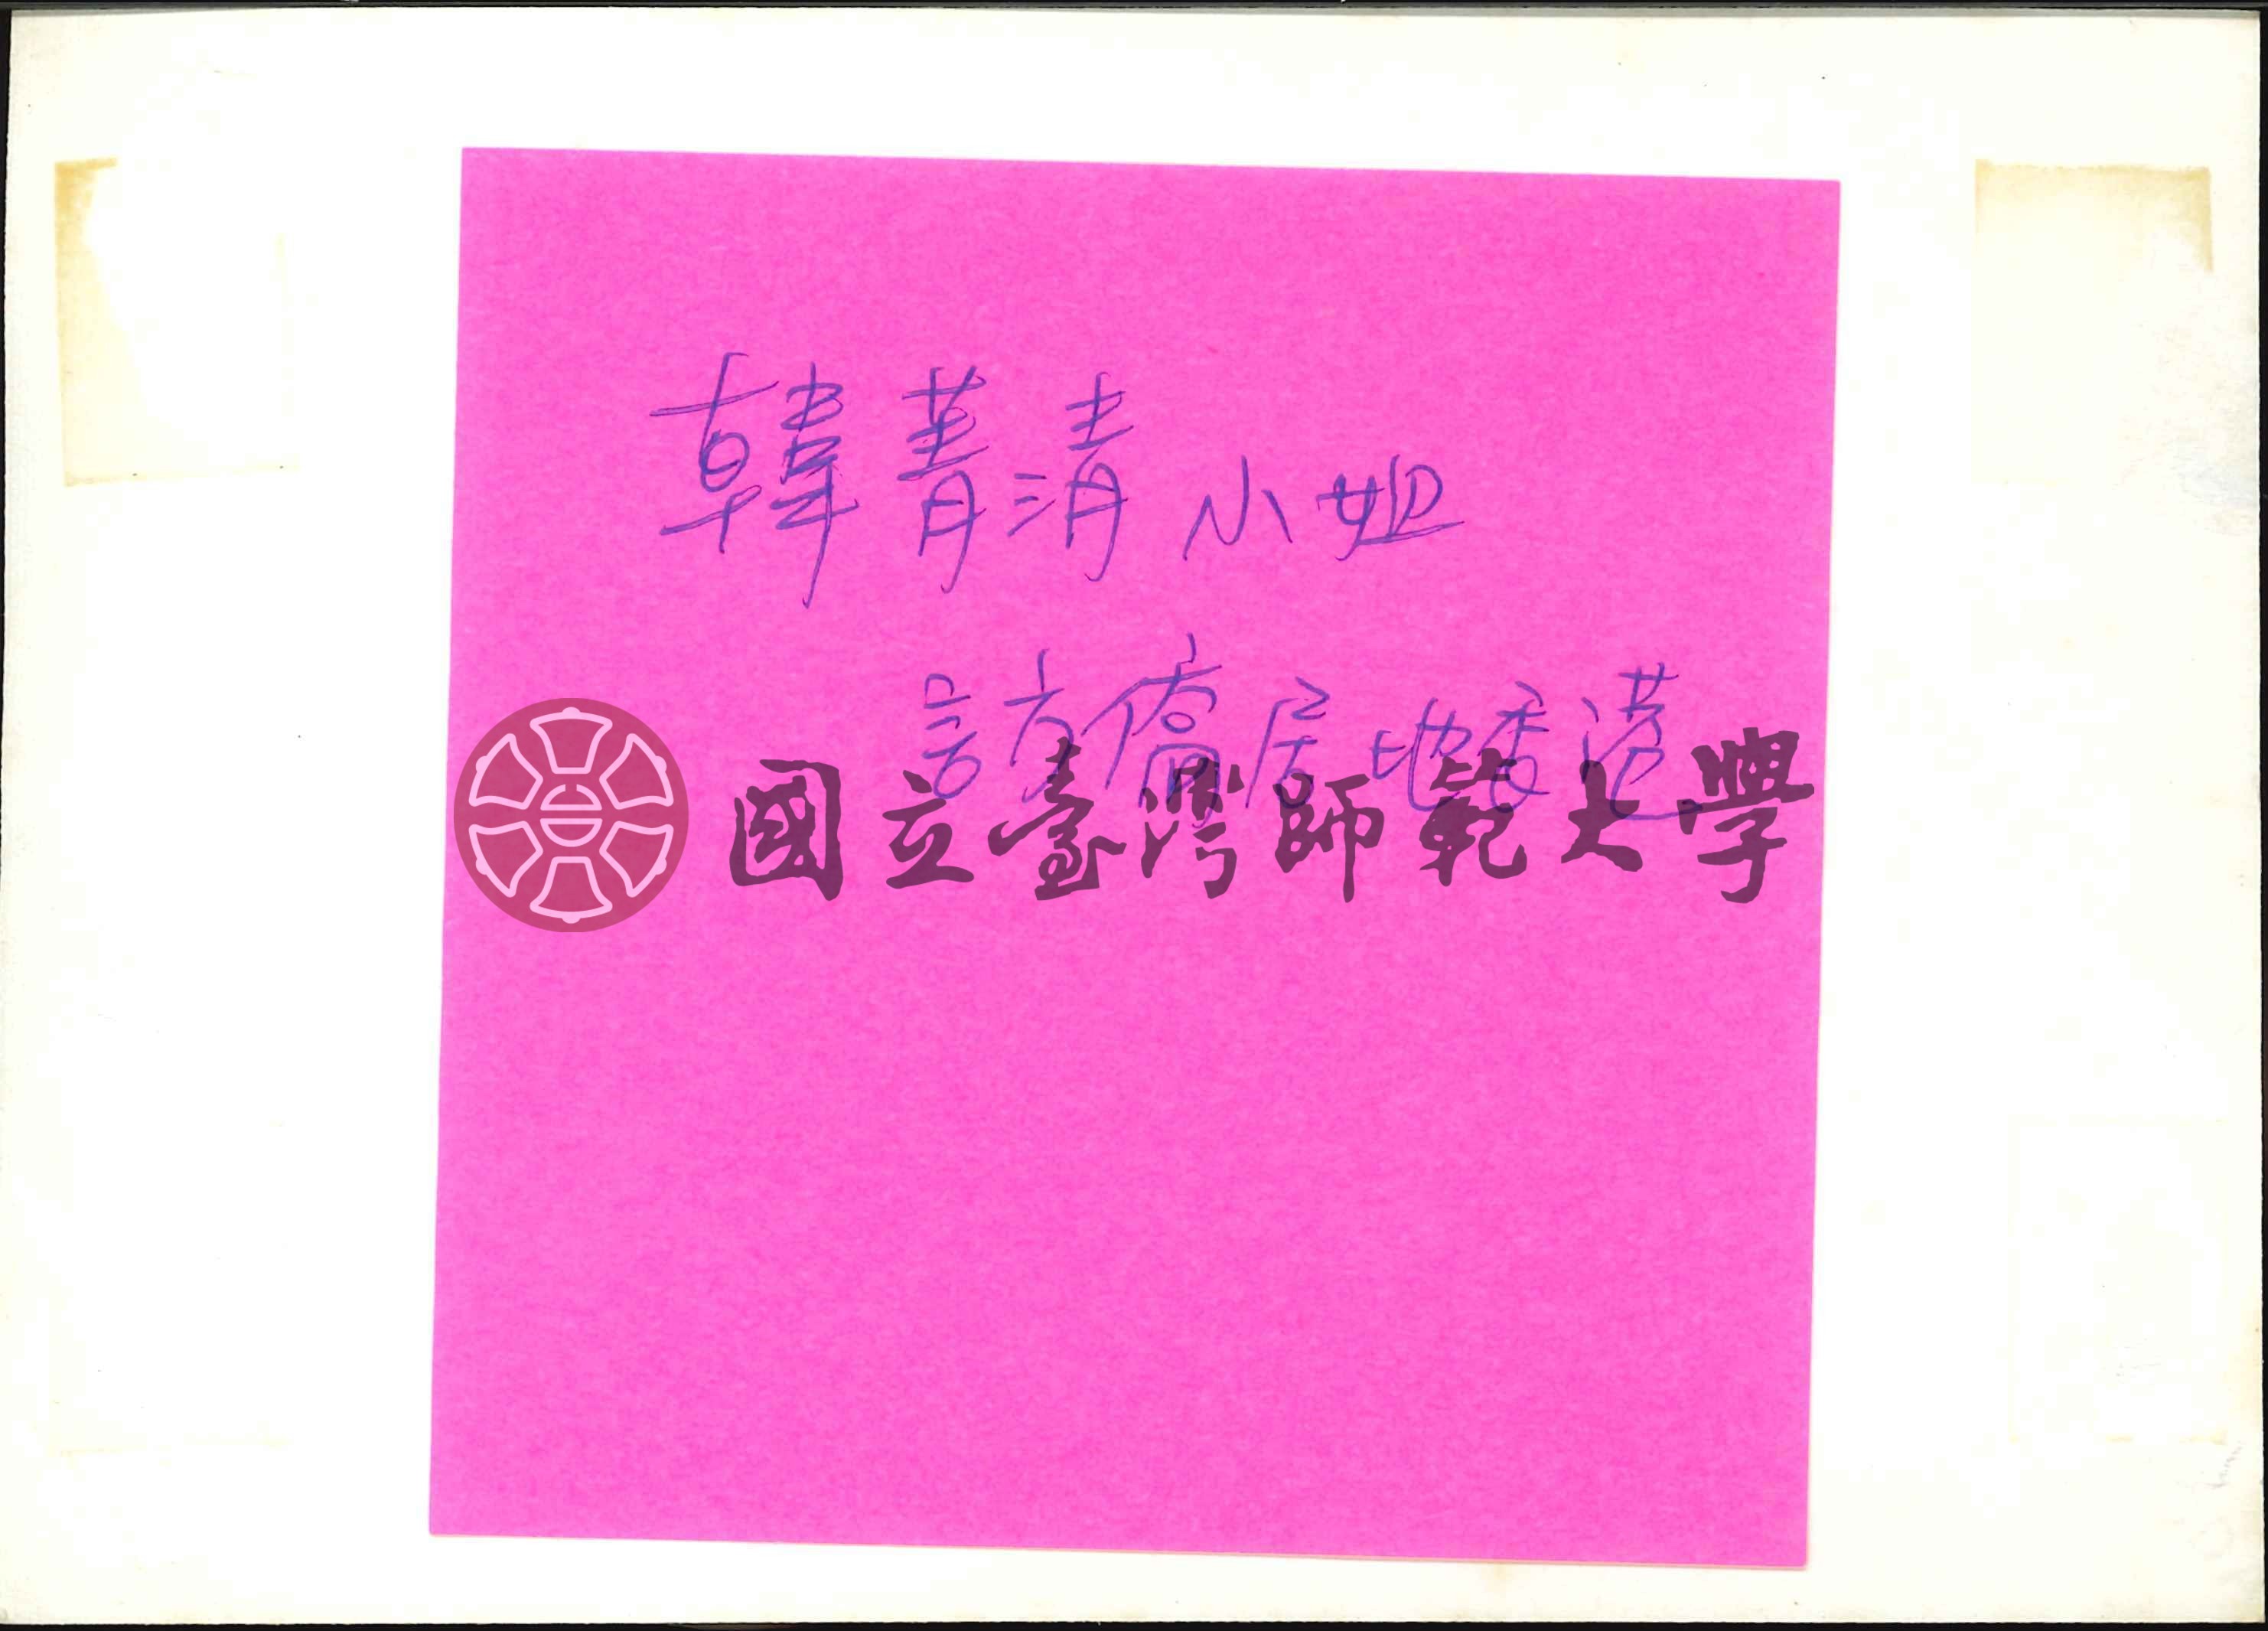 韓菁清小姐
訪僑居地香港
國立臺灣師範大學